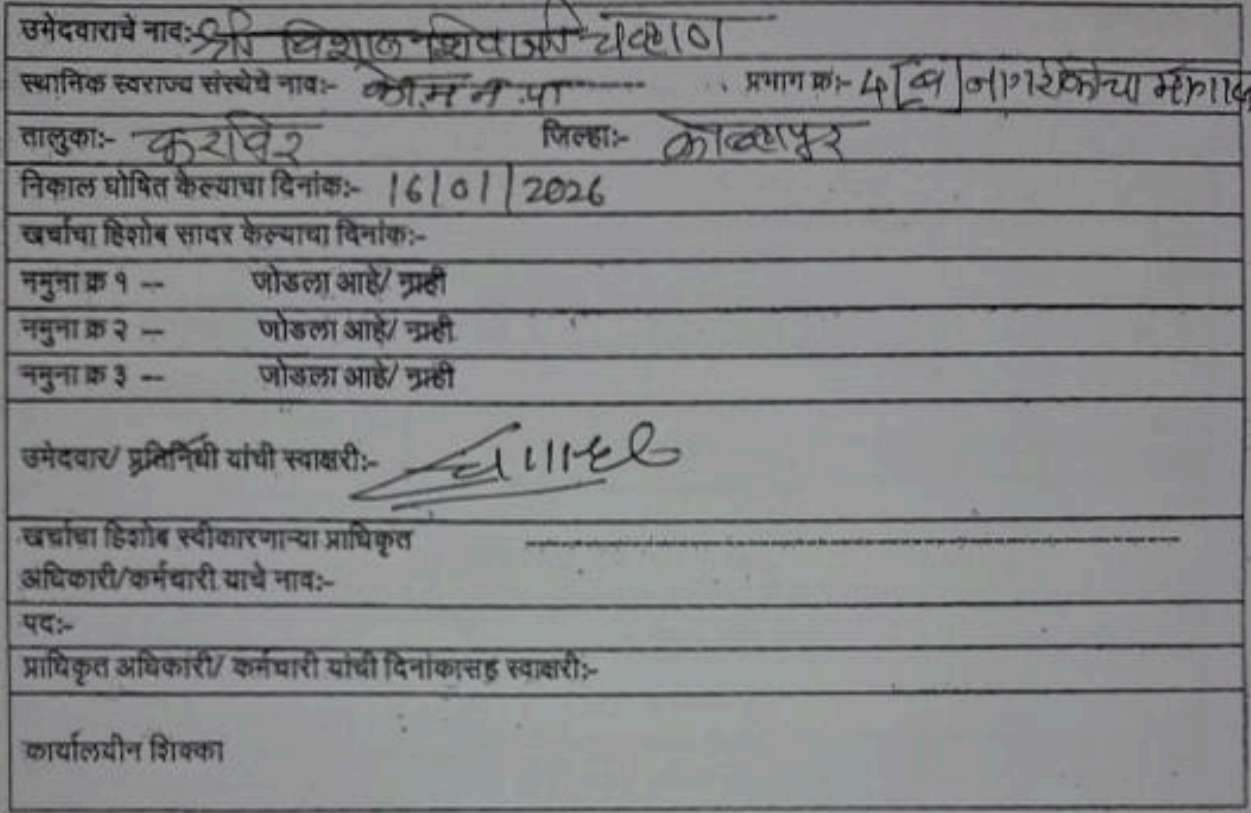 उमेदवाराचे नाव:- श्री विशाल शिवाजी चव्हाण
स्थानिक स्वराज्य संस्थेचे नाव:- को.म.न.पा प्रभाग क्र:- 4 [ब] नागरिकांचा
तालुका:- करविर जिल्हा:- कोल्हापूर
निकाल घोषित केल्याचा दिनांक:- 16/01/2026
खर्चाचा हिशोब सादर केल्याचा दिनांक:-
नमुना क्र १ -- जोडला आहे/ नाही
नमुना क्र २ -- जोडला आहे/ नाही
नमुना क्र ३ -- जोडला आहे/ नाही
उमेदवार/ प्रतिनिधी यांची स्वाक्षरी:-
खर्चाचा हिशोब स्वीकारणाऱ्या प्राधिकृत
अधिकारी/कर्मचारी याचे नाव:-
पद:-
प्राधिकृत अधिकारी/ कर्मचारी यांची दिनांकासह स्वाक्षरी:-
कार्यालयीन शिक्का